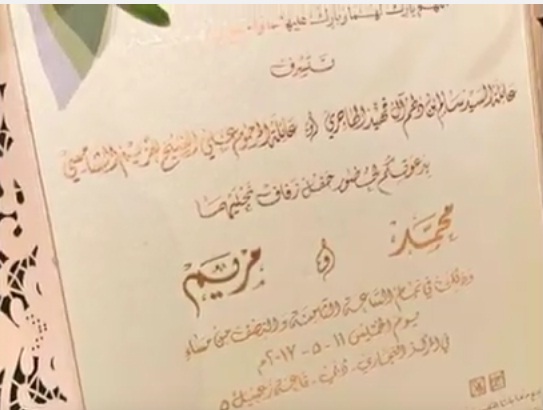 اللهم بارك لهما وبارك عليهما
تتشرف
عائلة السيد سالم بن دلهم آل قهيد الهاجري و عائلة المرحوم علي الشيخ هزيم الشامسي
بدعوتكم لحضور حفل زفاف نجليهما
محمد و مريم
وذلك في تمام الساعة الثامنة والنصف من مساء
يوم الخميس ١١ - ٥ - ٢٠١٧م
في المركز التجاري - دبي - قاعة زعبيل ٥